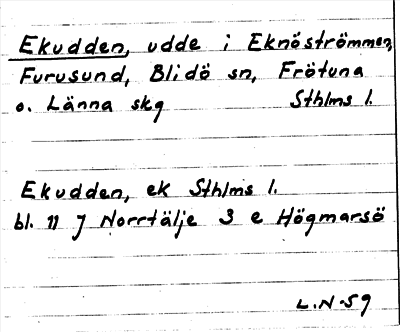 Ekudden, udde i Eknöströmmen,
Furusund, Blidö sn, Frötuna
o. Länna skg Sthlms l.
Ekudden, ek Sthlms l.
bl. 11 J Norrtälje 3 e Högmarsö
L.N-59